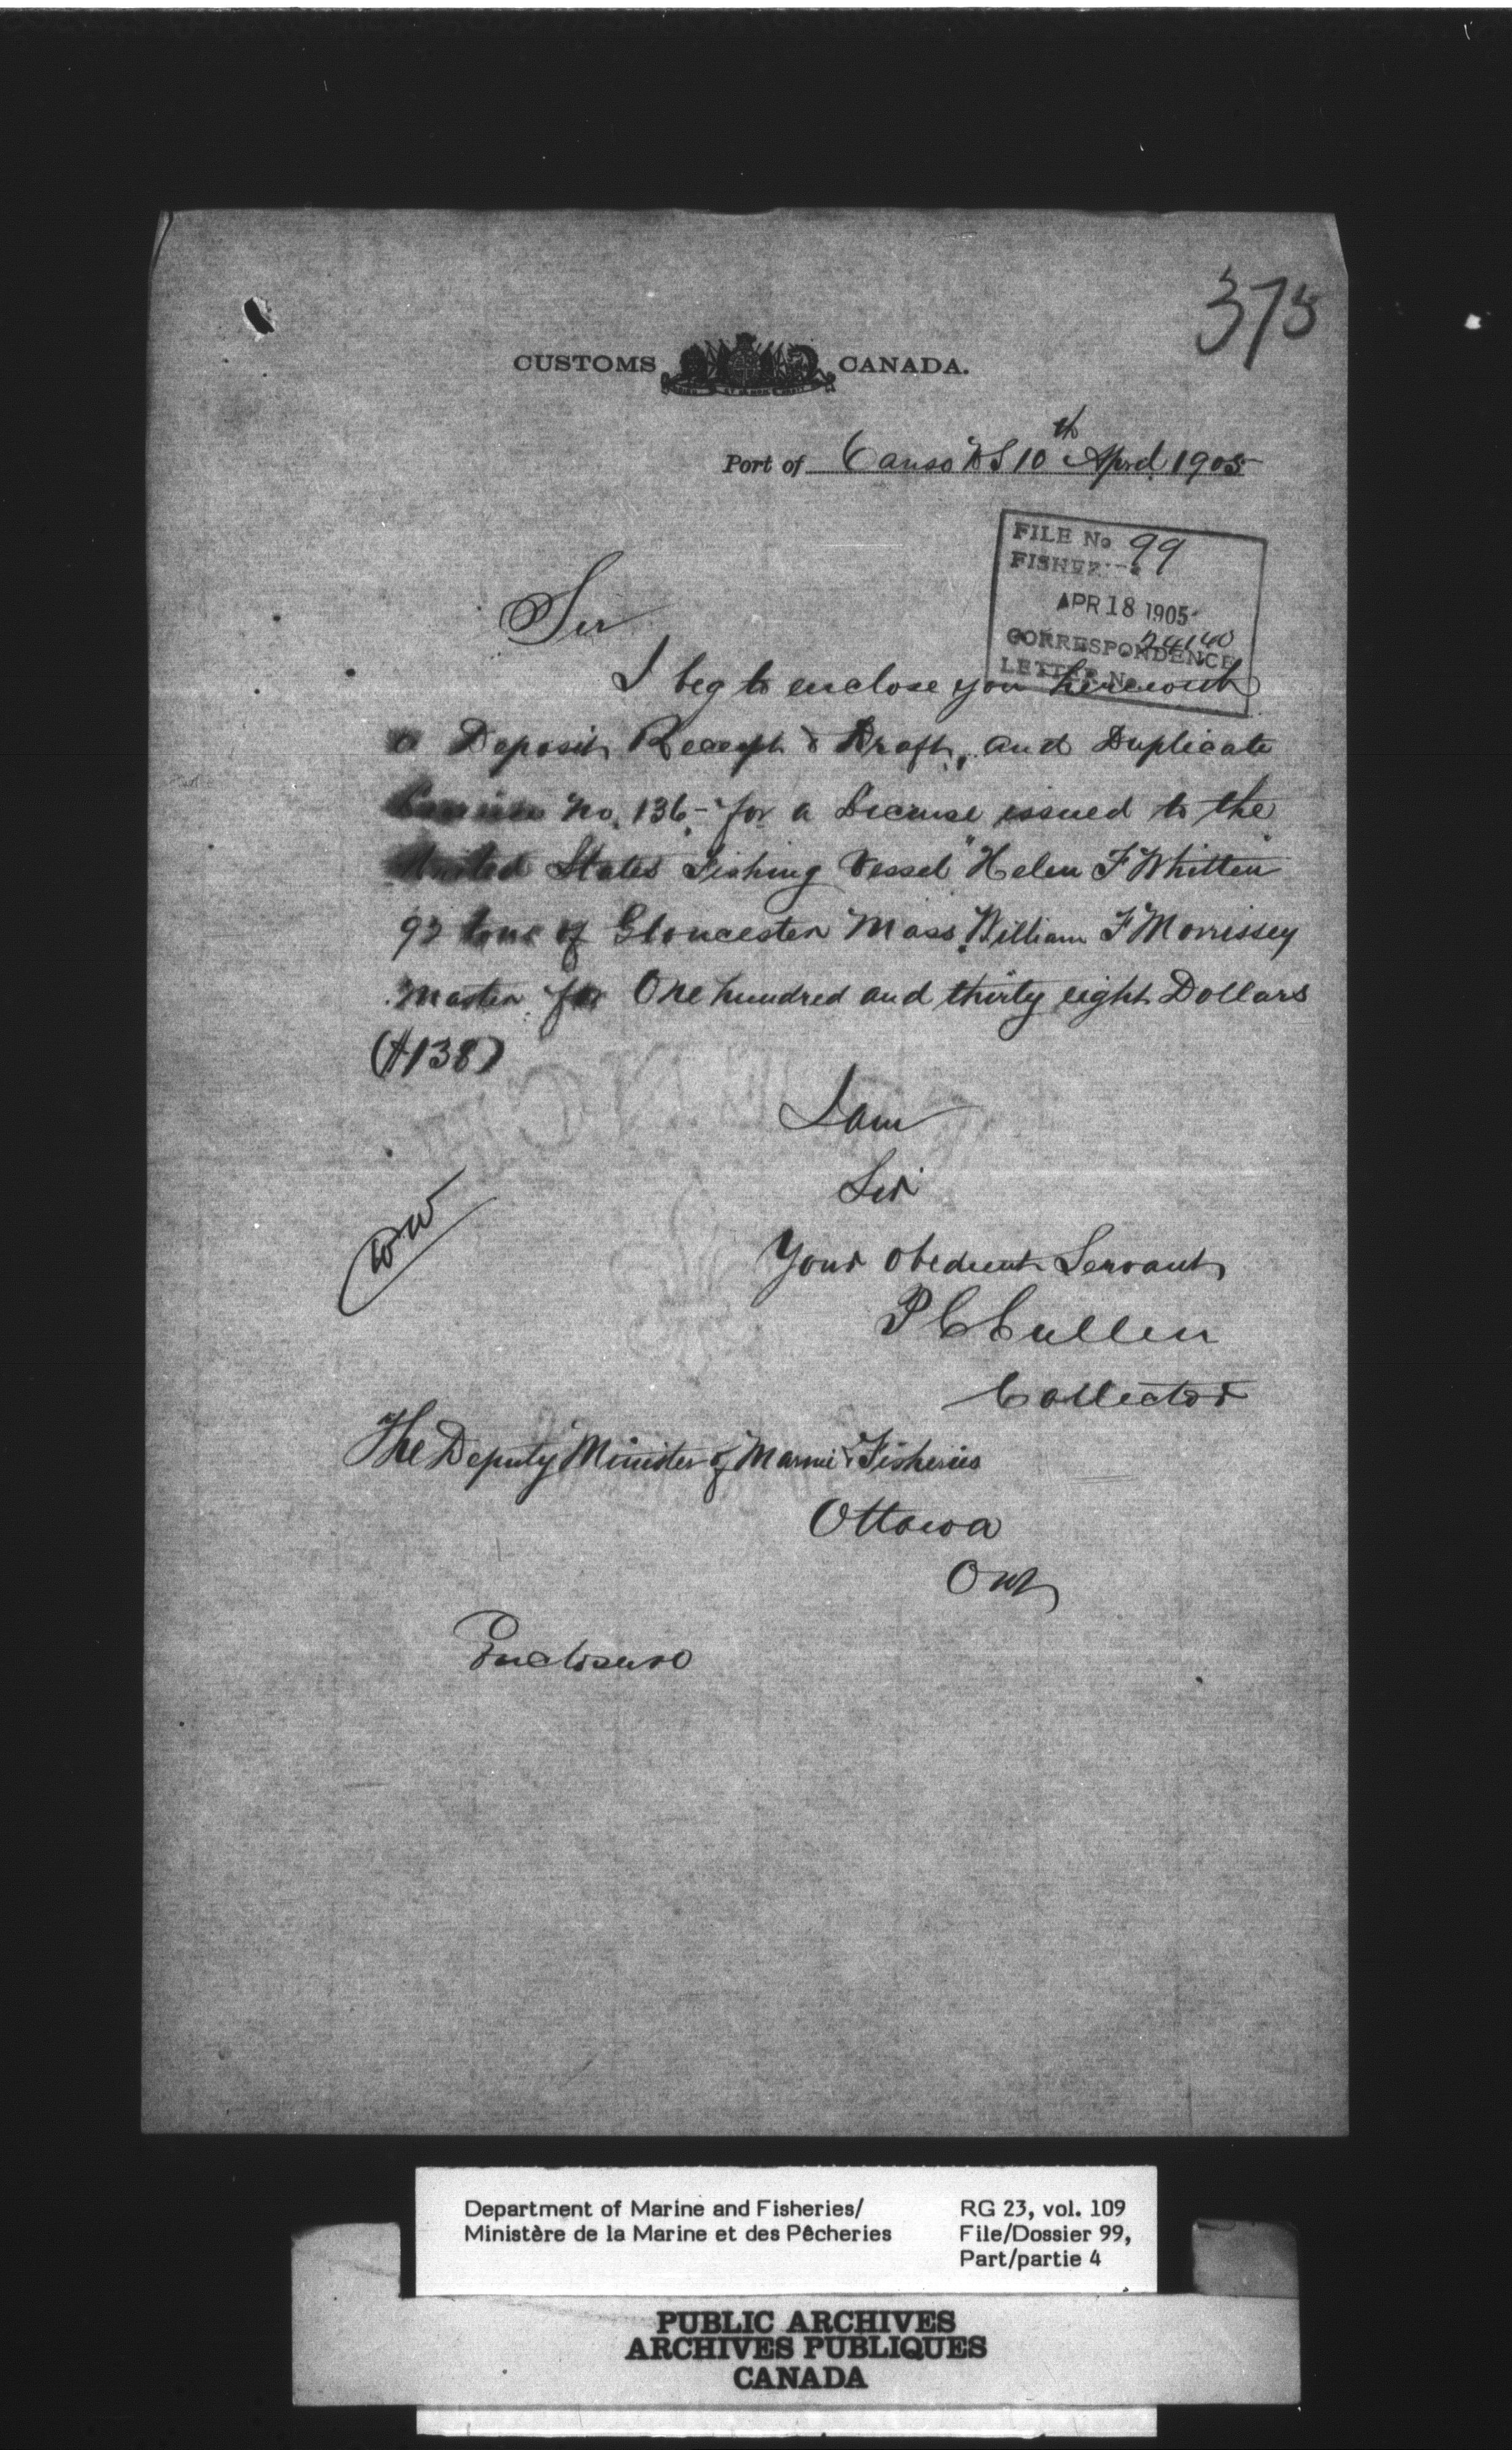 375
CUSTOMS CANADA.
Port of Canso NS 10th April 1905
FILE No 99
FISHE
APR 18 1905
CORRESPONDENCE
LETTER No
Sir
I beg to enclose you herewith
a Deposit Receipt & Draft, and Duplicate
License No. 136 - for a License issued to the
United States Fishing Vessel "Helen F Whitten"
92 tons of Gloucester Mass. William F Morrissey
Master for One hundred and thirty eight Dollars
($138)
I am
Sir
Your obedient Servant
P C Cullen
Collector
The Deputy Minister of Marine & Fisheries
Ottawa
Ont
Enclosure
Department of Marine and Fisheries/
Ministère de la Marine et des Pêcheries
RG 23, vol. 109
File/Dossier 99,
Part/partie 4
PUBLIC ARCHIVES
ARCHIVES PUBLIQUES
CANADA